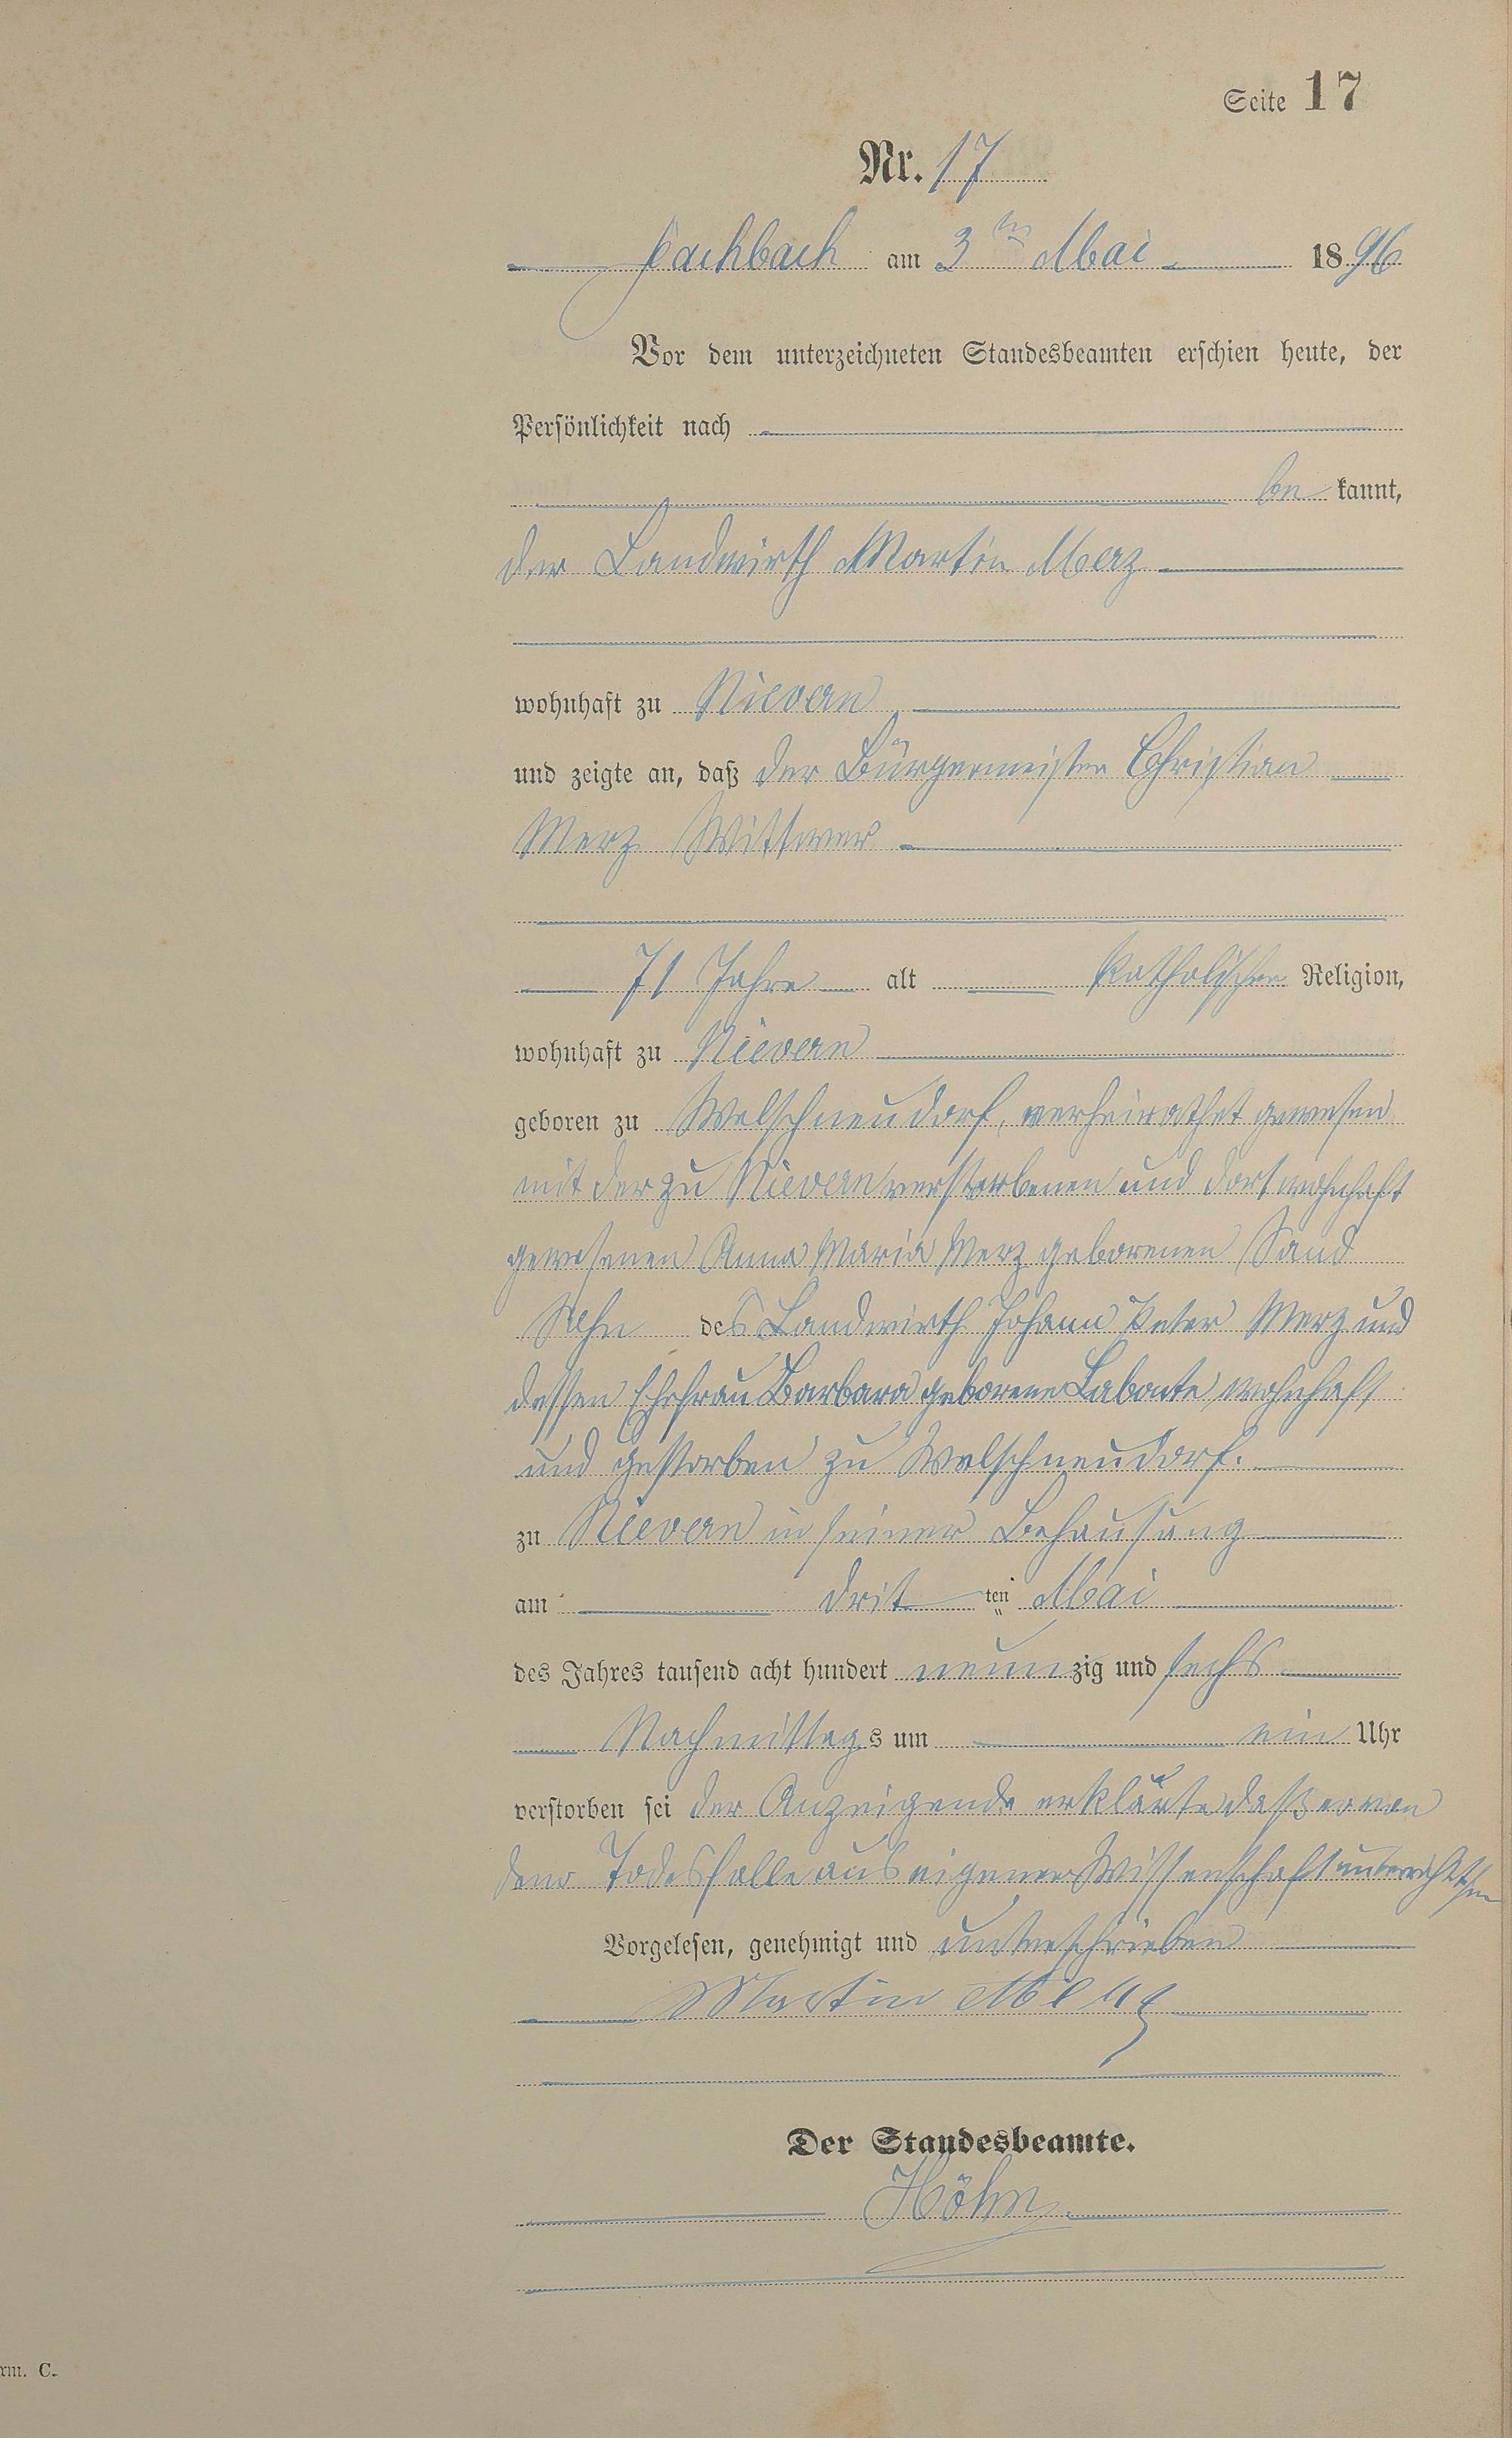 Seite 17
Nr. 17
Fachbach am 3ten Mai 1896
Vor dem unterzeichneten Standesbeamten erschien heute, der
Persönlichkeit nach
be kannt,
der Landwirth Martin Merz
wohnhaft zu Nievern
und zeigte an, daß der Bürgermeister Christian
Merz Wittwer
71 Jahre alt katholischer Religion,
wohnhaft zu Nievern
geboren zu Welschneudorf, verheirathet gewesen
mit der zu Nievern verstorbenen und dort wohnhaft
gewesenen Anna Maria Merz geborenen Sand
Sohn des Landwirth Johann Peter Merz und
dessen Ehefrau Barbara geborene Labonte wohnhaft
und gestorben zu Welschneudorf.
zu Nievern in seiner Behausung
am drit ten Mai
des Jahres tausend acht hundert neun zig und sechs
Nachmittag s um ein Uhr
verstorben sei der Anzeigende erklärte daß er von
dem Todesfalle aus eigener Wissenschaft unterrichtet sei
Vorgelesen, genehmigt und unterschrieben
Martin Merz
Der Standesbeamte.
Höhn
rm. C.